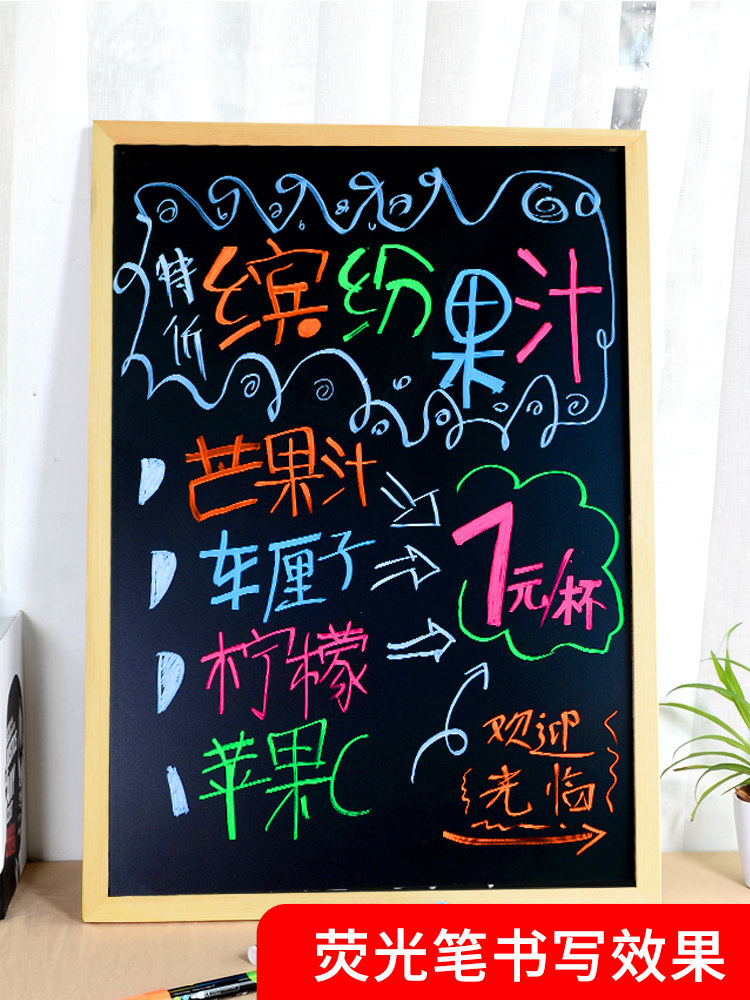 特价
缤纷果汁
芒果汁
车厘子
柠檬
苹果
1元/杯
欢迎
光临
荧光笔书写效果